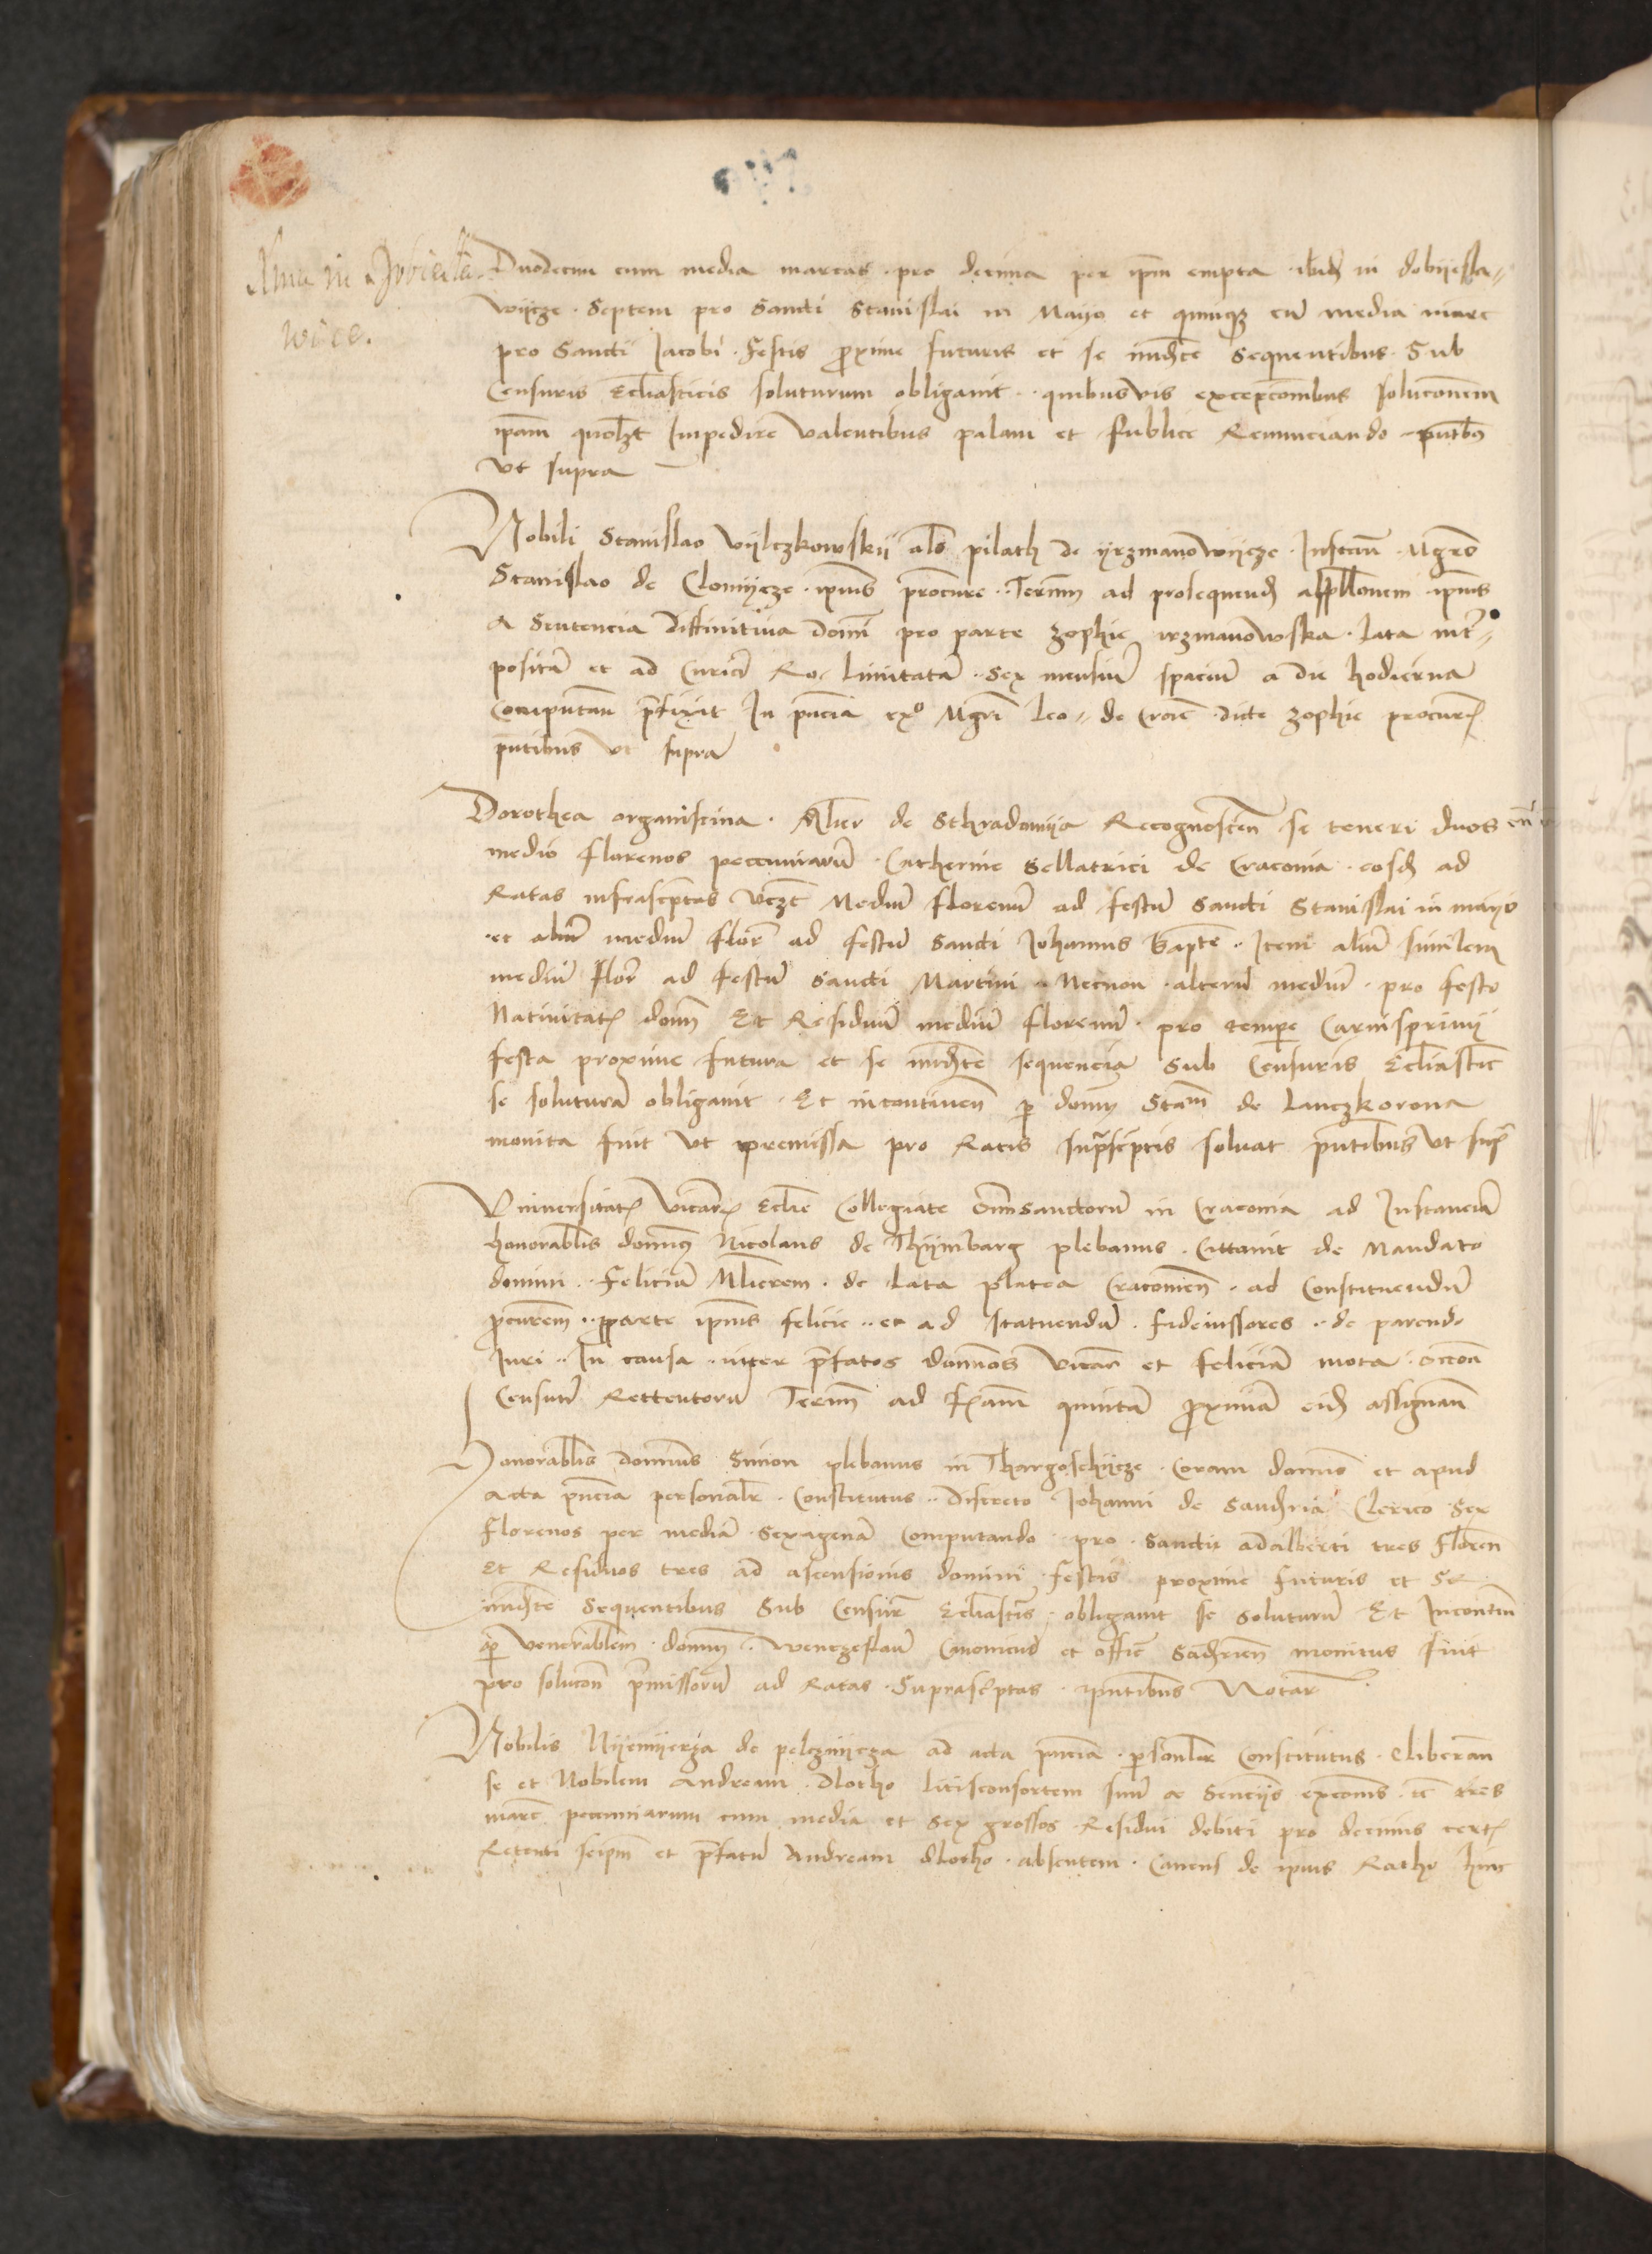 Duodecim cum media marcas pro decima per ipm empta ibid in dobiiessla„
wiicze Septem pro Sancti Stanislai in Maijo et quinqz cu media marc
pro Sancti Jacobi Festis proxime futuris et se imdte Sequentibus Sub
Censuris Eccliasticis soluturum obligavit quibusvis excepcombus soluconem
ipam quolzt Impedire Valentibus palam et publice Renunciando pntbus
Vt supra
Nobili Stanislao Vijlczkowskij als pilath de yrzmanowijcze Instan Mgro
Stanislao de Clomijcze ipius procure Termm ad prosequend appllonem ipius
a Sentencia Diffinitiua domi pro parte Zophie irzmanowska lata inter„
posita et ad Curia Ro limitata Sex mensiu spaciu a die hodierna
Computan prefixit In pncia ex Mgri Leo„ de Crac dicte Zophie procur
pntibus vt supra
Dorothea organistina Mlier de Sthradomija Recognoscen se teneri duos cu
medio florenos peccuniaru Catherine Sellatrici de Craconia eosd ad
Ratas infrascptas Vczt Mediu florenu ad festu Sancti Stanislai in maijo
et aliu mediu flor ad festu Sancti Johannis Bapte Item aliu similem
mediu flor ad festu Sancti Martini Necnon alteru mediu pro festo
Nativitat domi Et Residuu mediu florenu pro tempe Carnispriuij
festa proxime futura et se imdte sequencia Sub Censuris Eccliastic
se solutura obligavit Et incontinen p domu Stam de Lanczkorona
monita fuit Vt premissa pro Ratis suprascptis soluat pntibus Vt sup
Vniuersitat Vicar Eclie Collegiate Omsanctoru in Craconia ad Instancia
honorablis domus Nicolaus de Thijmbarg plebanus Cittavit de Mandato
domini Felicia Mlierem de lata platea Cracomen ad Constituendu
procurem pparte ipius felicie et ad statuendu fideiussores de parendo
Juri In causa inter prefatos domos Vicar et felicia mota occoe
Censuu Rettentoru Termm ad feriam quinta proxima eid assignan
Honorablis domus Simon plebanus in Thargoschijcze Coram domo et apud
acta pncia personalr Constitutus Discreto Johanni de Sandria Clerico Sex
Florenos per media Sexagena Computando pro Sancti adalberti tres floren
Et Residuos tres ad ascensionis domini festis proxime futuris et Se
imdte Sequentibus Sub Censur Eccliastis obligavit se soluturu Et Incontin
p Venerablem domu Wenczeslau Canonicu et offic Sadrien monitus fuit
pro solucon pmissoru ad Ratas Suprascptas pntibus Notar
Nobilis Nijemijerza de pelcznijcza ad acta pncia psonlr Constitutus eliberan
se et Nobilem Andream Dlotho litisconsortem suu a Sencijs excomis ic tres
marc peccuniarum cum media et Sex grossos Residui debiti pro decimis cert
Retenti seipm et prefatu Andream dlotho absentem Cauens de ipius Ratho hinc